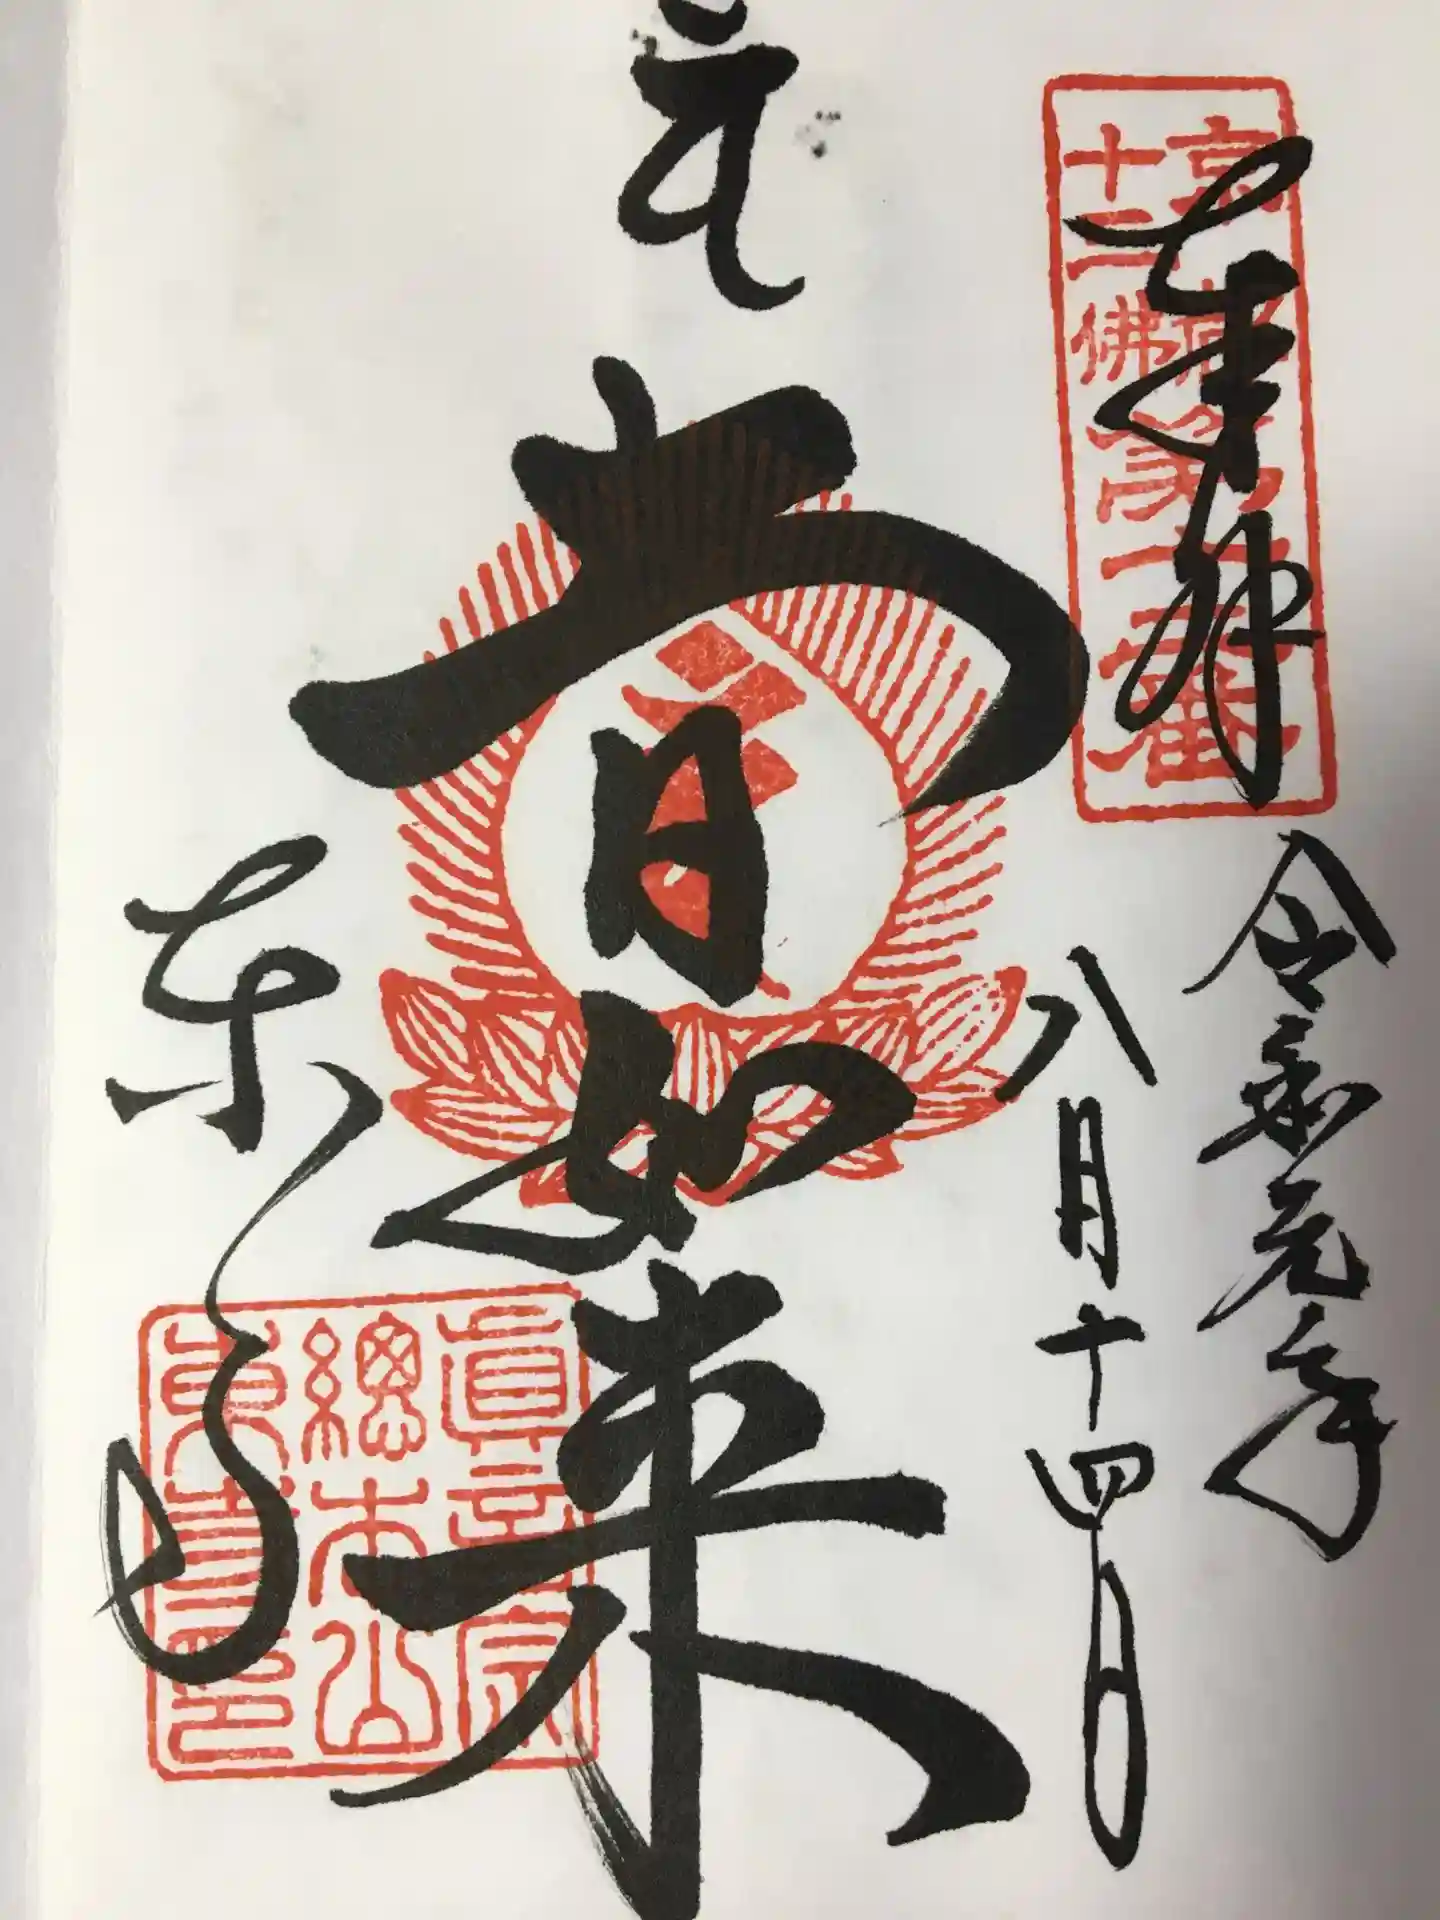 奉拝
京都
十三佛
第十二番
令和元年
八月十四日
大日如来
東寺
眞言宗
總本山
東寺印